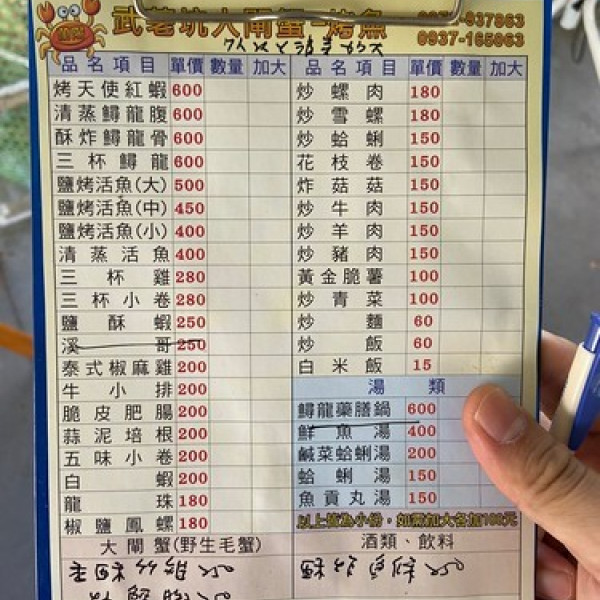 武荖坑大閘蟹-烤魚
937863
0937-165063
品名項目 單價 數量 加大
烤天使紅蝦 600
清蒸鱘龍腹 600
酥炸鱘龍骨 600
三杯鱘龍 600
鹽烤活魚(大) 500
鹽烤活魚(中) 450
鹽烤活魚(小) 400
清蒸活魚 400
三杯雞 280
三杯小卷 280
鹽酥蝦 250
溪哥 250
泰式椒麻雞 200
牛小排 200
脆皮肥腸 200
蒜泥培根 200
五味小卷 200
白蝦 200
龍珠 180
椒鹽鳳螺 180
大閘蟹(野生毛蟹)
品名項目 單價 數量 加大
炒螺肉 180
炒雪螺 180
炒蛤蜊 150
花枝卷 150
炸菇菇 150
炒牛肉 150
炒羊肉 150
炒豬肉 150
黃金脆薯 100
炒青菜 100
炒麵 60
炒飯 60
白米飯 15
湯類
鱘龍藥膳鍋 600
鮮魚湯 400
鹹菜蛤蜊湯 200
蛤蜊湯 150
魚貢丸湯 150
以上皆為小份，如需加大各加100元
酒類、飲料